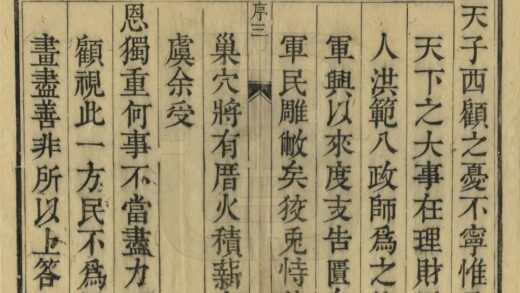 天子西顧之憂不寧惟
天下之大事在理財
人洪範八政師爲之
軍興以來度支告匱
軍民雕敝矣狡兎恃
序三
巢穴將有厝火積薪
虞余受
恩獨重何事不當盡力
顧視此一方民不爲
畫盡善非所以上答